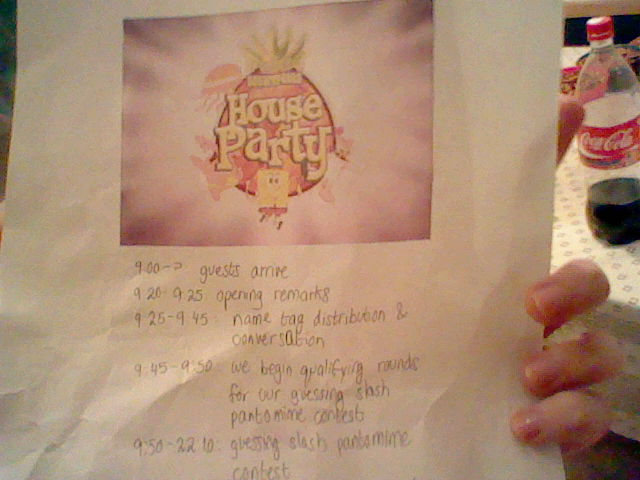 House
Party
9:00-> guests arrive
9:20-9:25 opening remarks
9:25-9:45: name tag distribution &
conversation
9:45-9:50: we begin qualifying rounds
for our guessing slash
pantomime contest
9:50-22:10: guessing slash pantomime
contest
Coca-Cola